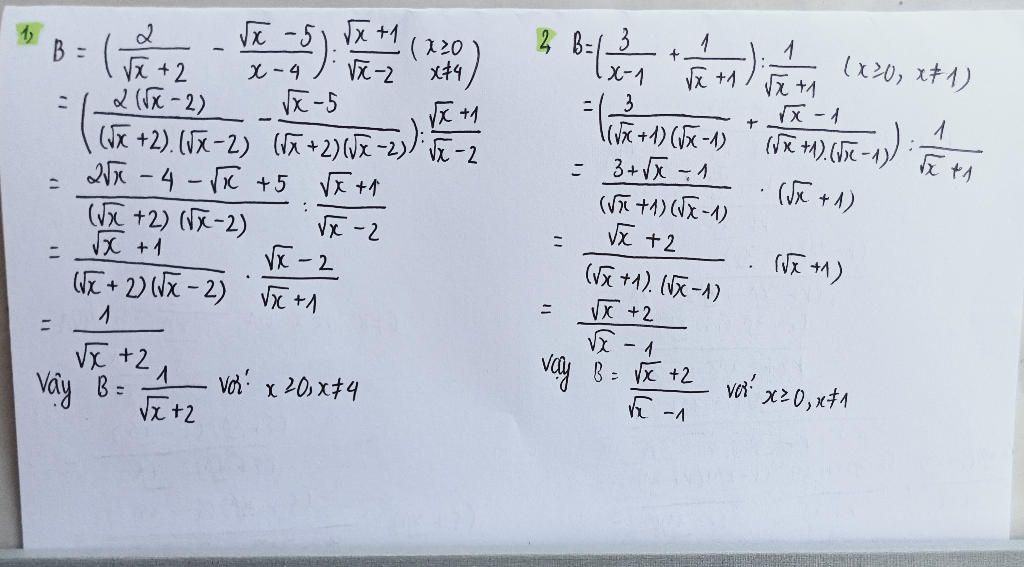 1, B = (2/(√x + 2) - (√x - 5)/(x - 4)) : (√x + 1)/(√x - 2) (x ≥ 0 x ≠ 4)
= (2(√x - 2)/((√x + 2).(√x - 2)) - (√x - 5)/((√x + 2)(√x - 2))) : (√x + 1)/(√x - 2)
= (2√x - 4 - √x + 5)/((√x + 2)(√x - 2)) : (√x + 1)/(√x - 2)
= (√x + 1)/((√x + 2)(√x - 2)) . (√x - 2)/(√x + 1)
= 1/(√x + 2)
Vậy B = 1/(√x + 2) với x ≥ 0, x ≠ 4
2, B = (3/(x - 1) + 1/(√x + 1)) : 1/(√x + 1) (x ≥ 0, x ≠ 1)
= (3/((√x + 1)(√x - 1)) + (√x - 1)/((√x + 1).(√x - 1))) : 1/(√x + 1)
= (3 + √x - 1)/((√x + 1)(√x - 1)) . (√x + 1)
= (√x + 2)/((√x + 1).(√x - 1)) . (√x + 1)
= (√x + 2)/(√x - 1)
Vậy B = (√x + 2)/(√x - 1) với x ≥ 0, x ≠ 1